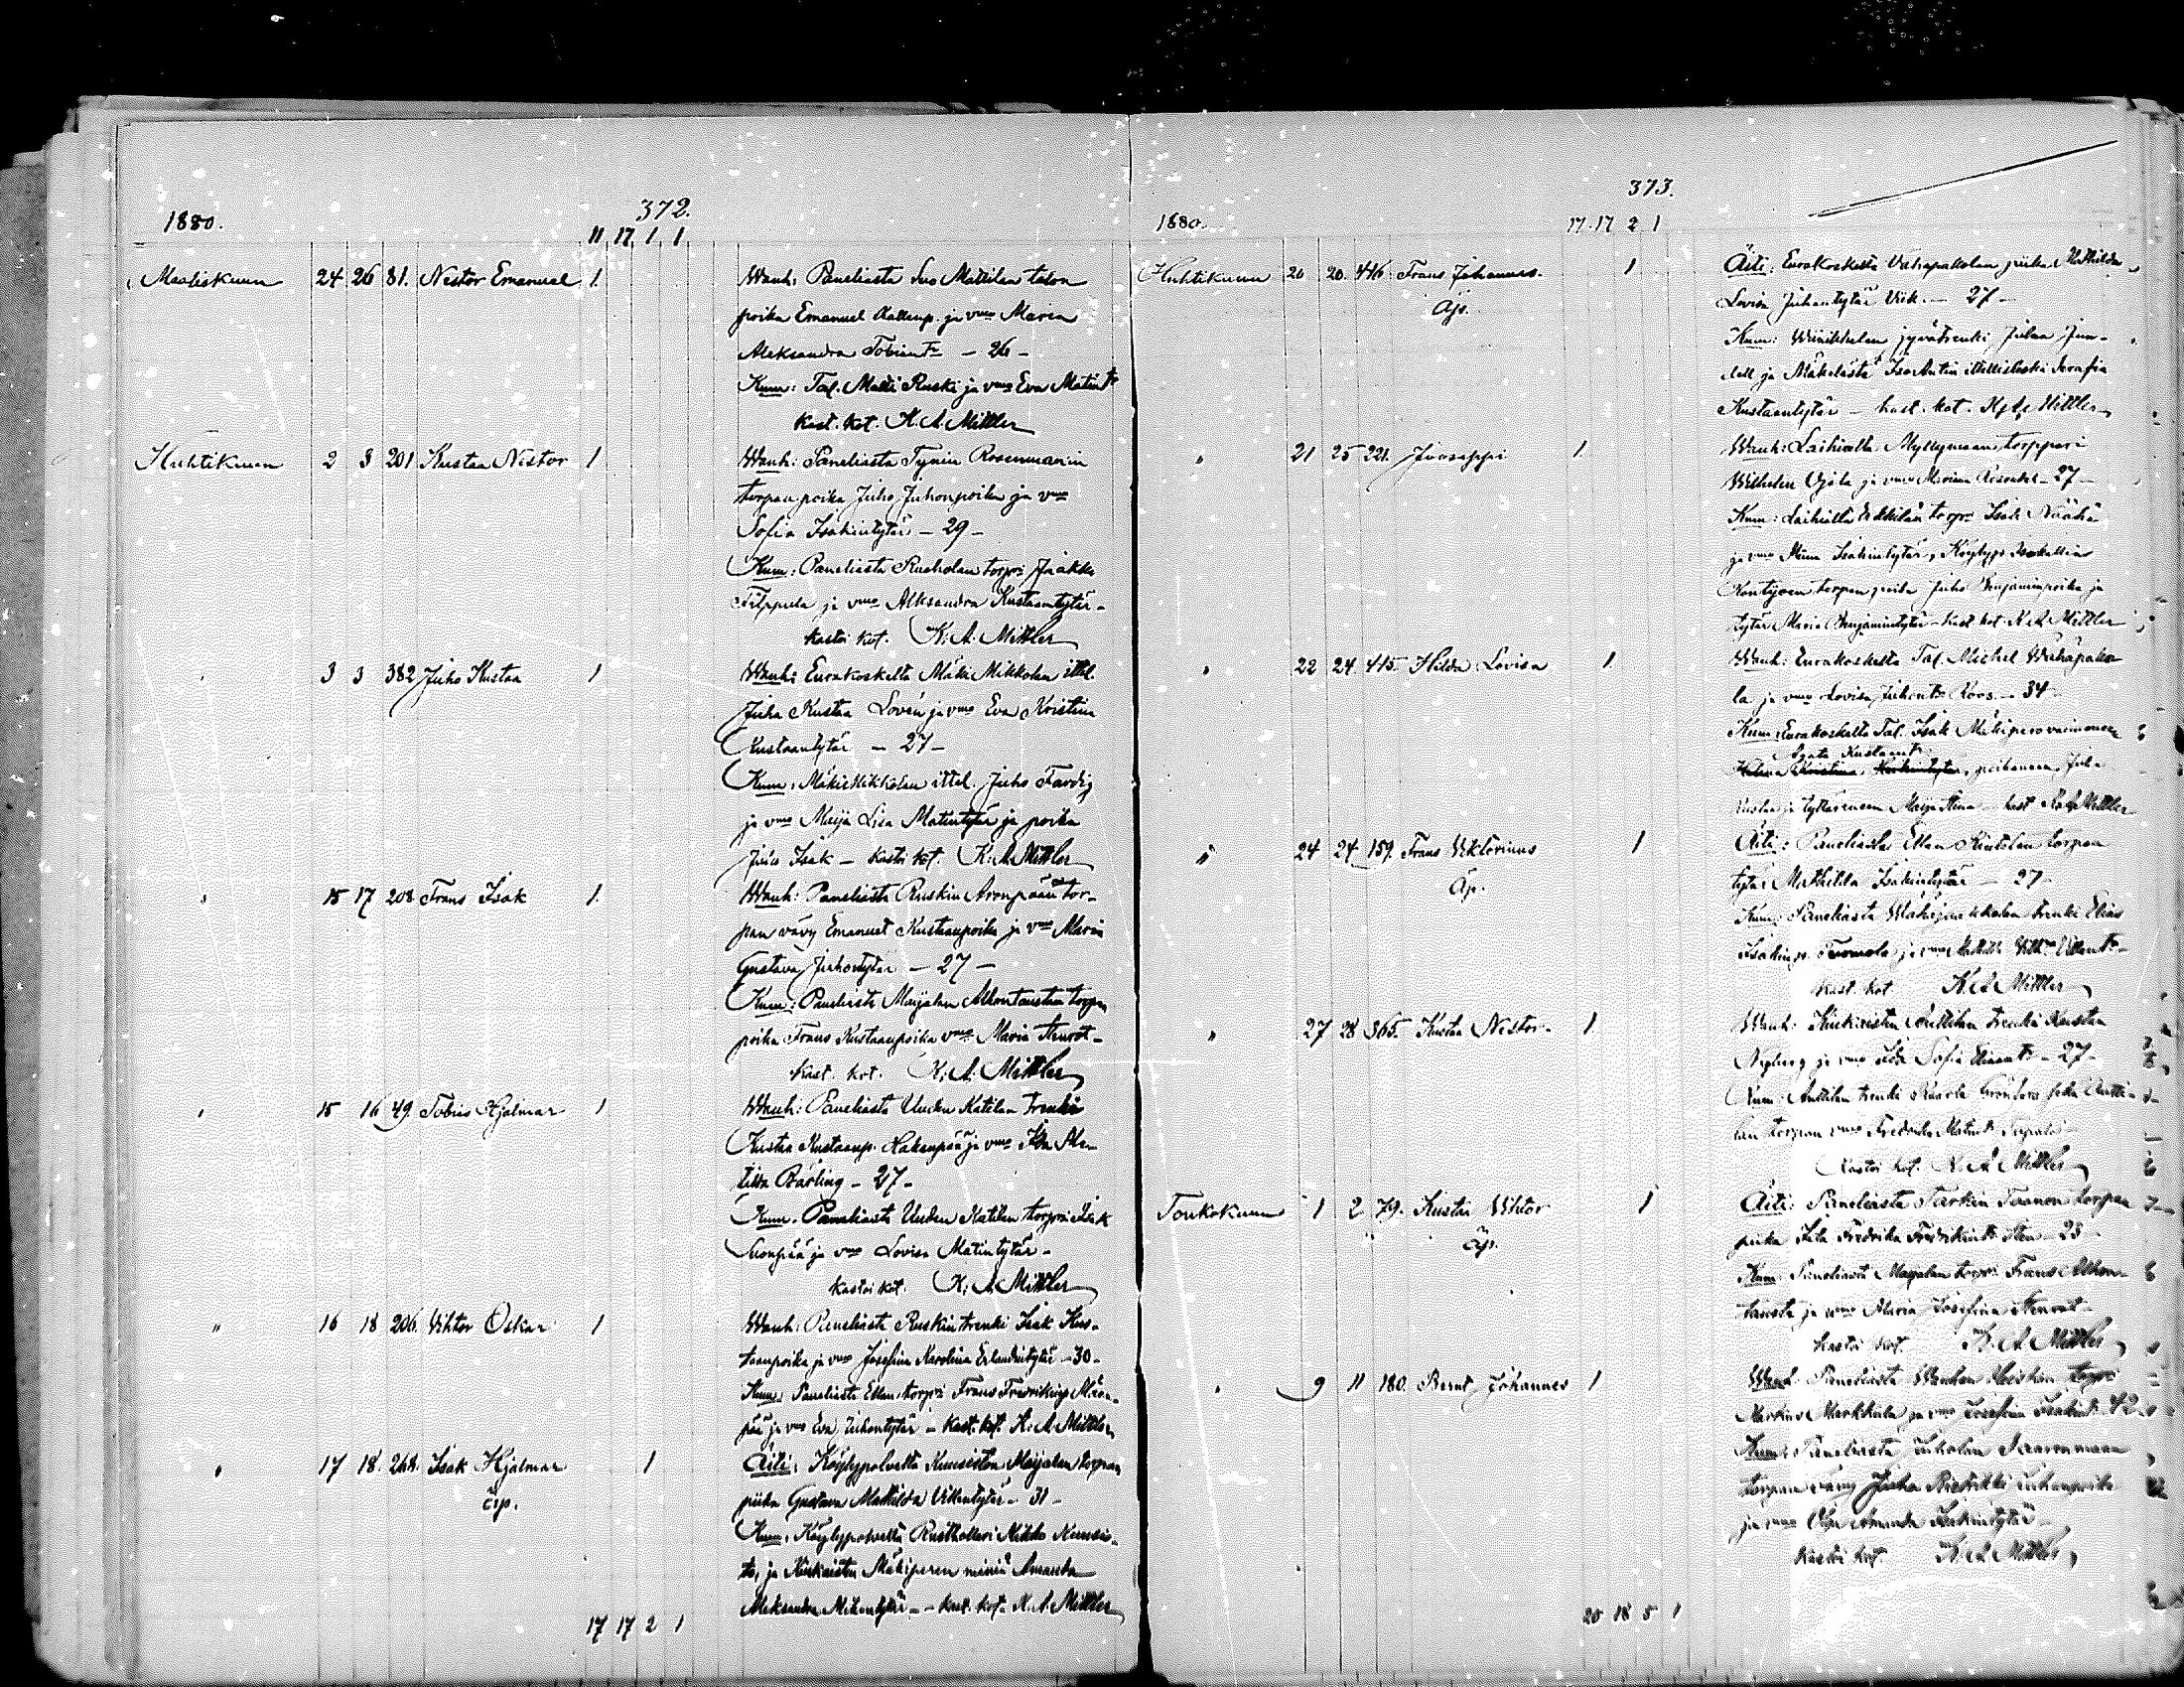 372.
1880.
11 17 1 1
Maaliskuun 24 26 81. Nestor Emanuel 1. Wanh: Paneliasta Suo Mattilan talon
poika Emanuel Aallenp. ja vmo Maria
Aleksandra Tobiantr – 26 –
Kum: Tal. Matti Ruski ja vmo Eva Matintr
kast. kot. K. A. Mittler
Huhtikuun 2 3 201 Kustaa Nestor 1 Wanh: Paneliasta Tynin Rosenmanin
torpan poika Juho Juhonpoika ja vmo
Sofia Isakintytär – 29 –
Kum: Paneliasta Ruoholan torpri Jaakko
Filppula ja vmo Aleksandra Kustaantytär –
kastoi kot. K. A. Mittler
" 3 3 382 Juho Kustaa 1 Wanh: Eurakoskelta Mäki Mikkolan ittel.
Juha Kustaa Lovén ja vmo Eva Kristiina
Kustaantytär – 27 –
Kum: Mäki Mikkolan ittel. Juho Fardig
ja vmo Maija Lisa Matintytär ja poika
Juho Isak – kastoi kot. K. A. Mittler
" 15 17 208 Frans Isak 1. Wanh: Paneliasta Ruskin Aronpään tor-
pan vävy Emanuel Kustaanpoika ja vmo Maria
Gustava Juhontytär – 27 –
Kum: Paneliasta Maijalan Alhontaustan torpan
poika Frans Kustaanpoika vmo Maria Stenrot –
kast. kot. K. A. Mittler
" 15 16 49. Tobias Hjalmar 1 Wanh: Paneliasta Uuden Katilan trenki
Kustaa Kustaanp. Hakanpää ja vmo Ida Ma-
tilda Bärling – 27 –
Kum. Paneliasta Uuden Katilan torpri Isak
Suonpää ja vmo Lovisa Matintytär –
kastoi kot. K. A. Mittler
" 16 18 206. Vihtor Oskar 1 Wanh: Paneliasta Ruskin trenki Isak Kus-
taanpoika ja vmo Josefina Karolina Erlandintytär – 30 –
Kum: Paneliasta Ellan torpri Frans Fredrikinp. Mään-
pää ja vmo Eva Juhontytär – kast. kot. K. A. Mittler
" 17 18. 268. Isak Hjalmar 1 Äiti: Köylypolvelta Kuusiston Maijalan torpan
äp. piika Gustava Mathilda Villentytär – 31 –
Kum: Köylypolvelta Rusthollari Mikko Kuusis-
to, ja Kiukaisten Mäkiperen miniä Amanda
Aleksandra Mikontytär – kast. kot. K. A. Mittler
17 17 2 1
373.
1880.
17 17 2 1
Huhtikuun 20 20. 416. Frans Johannes. 1 Äiti: Eurakoskelta Vähäpakolan piika Mathilda
Äp. Lovisa Juhantytär Viik. – 27 –
Kum: jyvätrenki Juha Jun-
dell ja Mäkelästä Iso Antin itellisleski Serafia
Kustaantytär – kast. kot. K. A. Mittler
" 21 25 221. Jooseppi 1. Wanh: Laihialta Myllymaan torppari
Wilhelm Ojala ja vmo Miriam – 27 –
Kum: Laihialta torpr. Isak
ja vmo Isakintytär, Köylypp.
torpan poika Juho Benjaminpoika ja
tytär Maria Benjamintytär – kast. kot. K. A. Mittler
" 22 24 415. Hilda Lovisa 1. Wanh: Eurakoskelta Tal. Michel Wähäpako-
la ja vmo Lovisa Juhontr Roos – 34 –
Kum: Eurakoskelta Tal. Isak Mäkipere vaimonsa
Agata Kustaantr
Helena Kristina poikansa Juha
ja tyttärensen Maija Stina – kast. K. A. Mittler
" 24 24 159. Frans Viktorinus 1 Äiti: Paneliasta Ellan Rintalan torpan
Äp. tytär Mathilda Isakintytär – 27 –
Kum: Paneliasta trenki Elias
Isakinp. Tuomola ja vmo
kast. kot K. A. Mittler
" 27 28 365. Kustaa Nestor. 1. Wanh: Kiukaisten Anttilan trenki Kustaa
Nyberg ja vmo Ida Sofia Eliaantr – 27 –
Kum: Anttilan trenki Kaarle Grönfors seka Antti-
lan torpan vmo Fredrika Matintr
Kastoi kot. K. A. Mittler
Toukokuun 1 2 79. Kustaa Vihtor 1 Äiti: Paneliasta torpan
äp. piika Ida Fredrika Fredrikintr – 23 –
Kum: Paneliasta Maijalan torpr. Frans Alhon-
tausta ja vmo Maria Josefina Stenrot –
kastoi kot. K. A. Mittler
" 9 11 180. Bernt Johannes 1 Wanh: Paneliasta Wanhan torpri
Markus Markkula ja vmo Josefina Isakint. 42 –
Kum: Paneliasta Juholan
torpan vävy Juha Juhanpoika
ja vmo Olga Amanda Isakintytär –
kastoi kot. K. A. Mittler
20 18 5 1